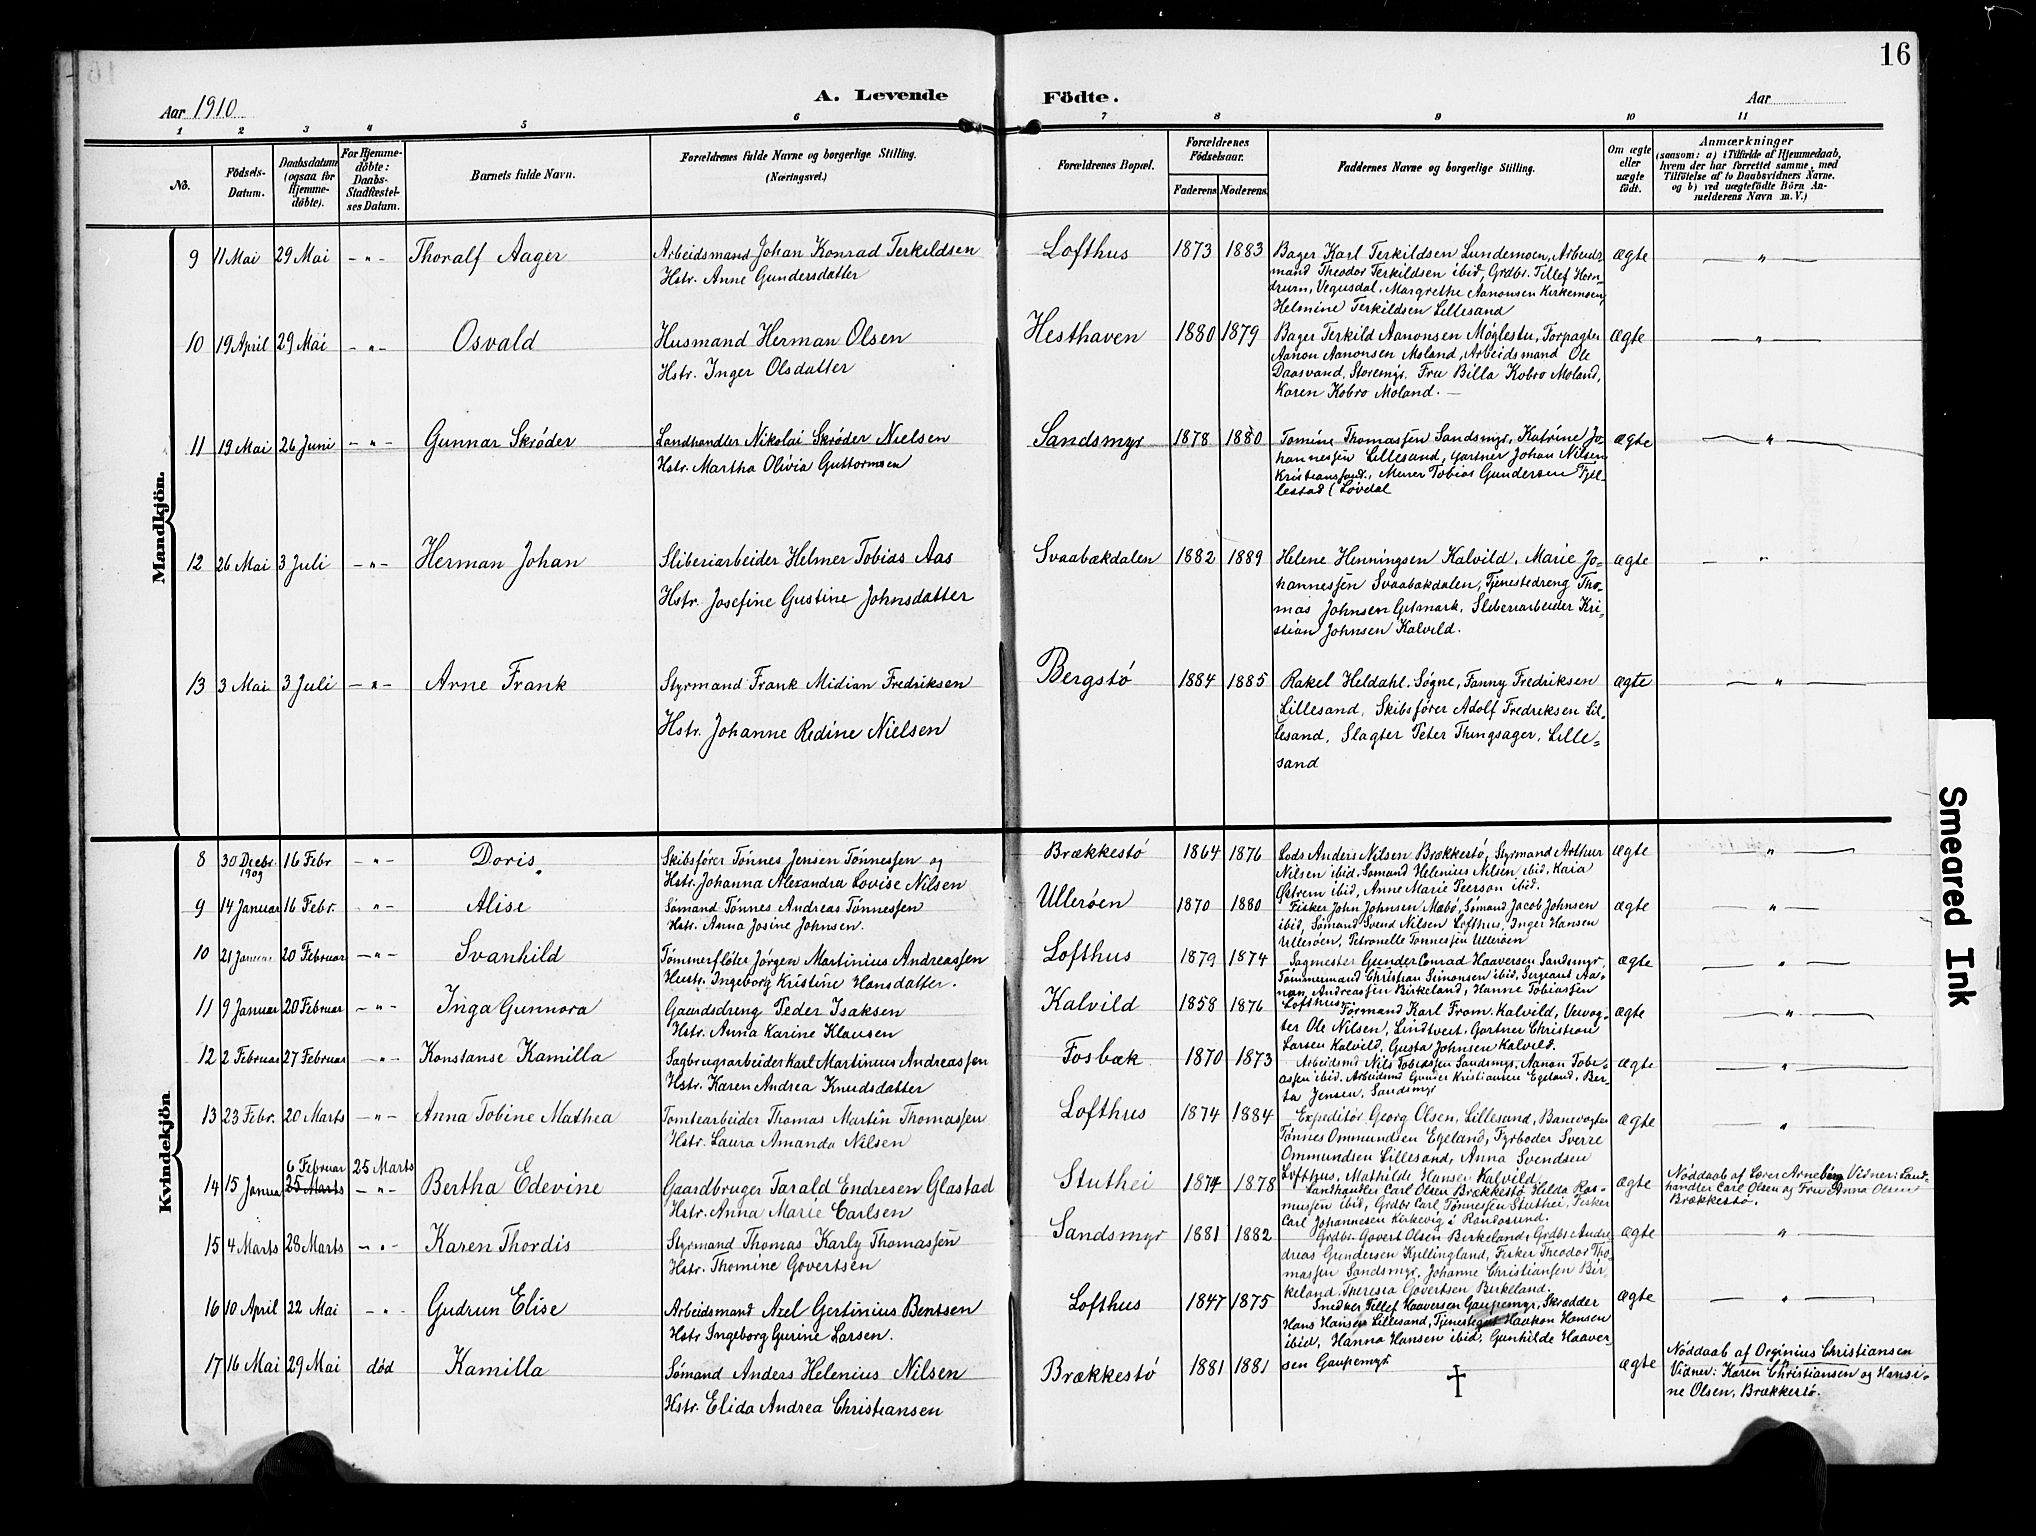 16
Aar 1910
A. Levende Födte.
Aar
1 2 3 4 5 6 7 8 9 10 11
No.
Födsels-Datum.
Daabsdatum (ogsaa for Hjemme-döbte).
For Hjemme-döbte: Daabs-Stadfæstel-ses Datum.
Barnets fulde Navn.
Forældrenes fulde Navne og borgerlige Stilling.
(Næringsvei.)
Forældrenes Bopæl.
Forældrenes Födselsaar.
Faderens Moderens.
Faddernes Navne og borgerlige Stilling.
Om ægte eller uægte født.
Anmærkninger
(saasom: a) i Tilfælde af Hjemmedaab,
hvem der har forrettet samme, med
Tilföielse af to Daabsvidners Navne.
og b) ved uægtefödte Börn An-
melderens Navn m. V.)
Mandkjön.
9 11 Mai 29 Mai -"- Thoralf Aager
Arbeidsmand Johan Konrad Terkildsen
Hstr. Anne Gundersdatter
Lofthus 1873 1883
Bager Karl Terkildsen Lundemoen, Arbeids-
mand Theodor Terkildsen ibid, Grdbr. Tillef Horn-
drum, Vegusdal. Margrethe Aanonsen Kirkemoen,
Helmine Terkildsen Lillesand
ægte "
10 19 April 29 Mai -"- Osvald
Husmand Herman Olsen
Hstr. Inger Olsdatter
Hesthaven 1880 1879
Bager Terkild Aanonsen Møglestu, Forpagter
Aanon Aanonsen Moland, Arbeidsmand Ole
Daasvand, Storemyr. Fru Billa Kobro Moland,
Karen Kobro Moland. —
ægte "
11 19 Mai 26 Juni -"- Gunnar Skrøder
Landhandler Nikolai Skrøder Nielsen
Hstr. Martha Olivia Guttormsen
Sandsmyr 1878 1880
Tomine Thomassen Sandsmyr, Katrine Jo-
hannessen Lillesand, Gartner Johan Nilsen
Kristianssand., Murer Tobias Gundersen Fjel-
lestad (Løvdal
ægte "
12 26 Mai 3 Juli -"- Herman Johan
Sliberiarbeider Helmer Tobias Aas
Hstr. Josefine Gustine Johnsdatter
Svaabækdalen 1882 1889
Helene Henningsen Kalvild, Marie Jo-
hannessen Svaabækdalen, Tjenestedreng Tho-
mas Johnsen Gitmark, Sliberiarbeider Kri-
stian Johnsen Kalvild.
ægte "
13 3 Mai 3 Juli -"- Arne Frank
Styrmand Frank Midian Fredriksen
Hstr. Johanne Redine Nielsen
Bergstø 1884 1885
Rakel Heldahl, Søgne, Fanny Fredriksen
Lillesand, Skibsfører Adolf Fredriksen Lil-
lesand, Slagter Peter Thingsager, Lille-
sand
ægte "
Kvindekjön
8 30 Decbr. 1909 16 Febr -"- Doris
Skibsfører Tønnes Jensen Tønnessen og
Hstr. Johanna Alexandra Lovise Nilsen
Brækkestø 1864 1876
Lods Anders Nilsen Brækkestø, Styrmand Arthur
Nilsen ibid. Sømand Helenius Nilsen ibid, Kaia
Østrem ibid, Anne Marie Peerson ibid.
ægte "
9 14 Januar 16 Febr. -"- Alise
Sømand Tønnes Andreas Tønnessen
Hstr. Anna Josine Johnsen.
Ullerøen 1870 1880
Fisker John Johnsen Mæbø, Sømand Jacob Johnsen
ibid, Sømand Svend Nilsen Lofthus, Inger Hansen
Ullerøen, Petronelle Tønnessen Ullerøen
ægte "
10 21 Januar 20 Februar -"- Svanhild
Tømmerfløter Jørgen Martinius Andreassen
Hustr. Ingeborg Kristine Hansdatter.
Lofthus 1879 1874
Sagmester Gunder Conrad Haaversen Sandsmyr,
Tømmermand Christian Simonsen ibid, Sergeant Aa-
non Andreassen Birkeland, Hanne Tobiassen
Lofthus
ægte "
11 9 Januar 20 Februar -"- Inga Gunnora
Gaardsdreng Peder Isaksen
Hstr. Anna Karine Klausen
Kalvild 1858 1876
Formand Karl From. Kalvild, Veivog-
ter Ole Nilsen, Lindtveit. Gartner Christian
Larsen Kalvild, Gusta Johnsen Kalvild.
ægte "
12 2 Februar 27 Februar -"- Konstanse Kamilla
Sagbrugsarbeider Karl Martinius Andreassen
Hstr. Karen Andrea Knudsdatter
Fosbæk 1870 1873
Arbeidsmd Nils Tobiassen Sandsmyr, Aanon Tobi-
assen ibid. Arbeidsmd Gunder Kristiansen Egeland, Ber-
ta Jensen, Sandsmyr
ægte "
13 23 Febr. 20 Marts -"- Anna Tobine Mathea
Tomtearbeider Thomas Martin Thomassen
Hstr. Laura Amanda Nilsen
Lofthus 1874 1884
Expeditør Georg Olsen, Lillesand, Banevogter
Tønnes Ommundsen Egeland, Fyrbøder Sverre
Ommundsen Lillesand, Anna Svendsen
Lofthus, Mathilde Hansen Kalvild
ægte "
14 15 Januar 6 Februar 25 Marts 25 Marts -"- Bertha Edevine
Gaardbruger Tarald Endresen Glastad
Hstr. Anna Marie Carlsen
Stuthei 1874 1878
Landhandler Carl Olsen Brækkestø, Helda Ras-
mussen ibid, Grdbr Carl Tønnessen Stuthei, Fisker
Carl Johannesen Kirkevig i Randøsund.
ægte
Nøddaab af Lærer Arneberg Vidner: Land-
handler Carl Olsen og Fru Anna Olsen
Brækkestø.
15 4 Marts 28 Marts -"- Karen Thordis
Styrmand Thomas Karly Thomassen
Hstr. Thomine Govertsen
Sandsmyr 1881 1882
Grdbr. Govert Olsen Birkeland, Grdbr Andre-
dreas Gundersen Kyllingland, Fisker Theodor Tho-
massen Sandsmyr, Johanne Christiansen Bir-
keland. Theresia Govertsen Birkeland.
ægte "
16 10 April 22 Mai -"- Gudrun Elise
Arbeidsmand Axel Gertinius Bentsen
Hstr Ingeborg Gurine Larsen.
Lofthus 1847 1875
Snedker Tillef Haaversen Gaupemyr, Skrædder
Hans Hansen Lillesand, Tjenestegut Haakon Hansen
ibid, Hanna Hansen ibid, Gunhilde Haaver-
sen Gaupemyr
ægte "
17 16 Mai 29 Mai død Kamilla
Sømand Anders Helenius Nilsen
Hstr. Elida Andrea Christiansen
Brækkestø 1881 1881
ægte
Nøddaab af Orginius Christiansen
Vidner: Karen Christiansen og Hansi-
ne Olsen, Brækkestø.
Smeared Ink